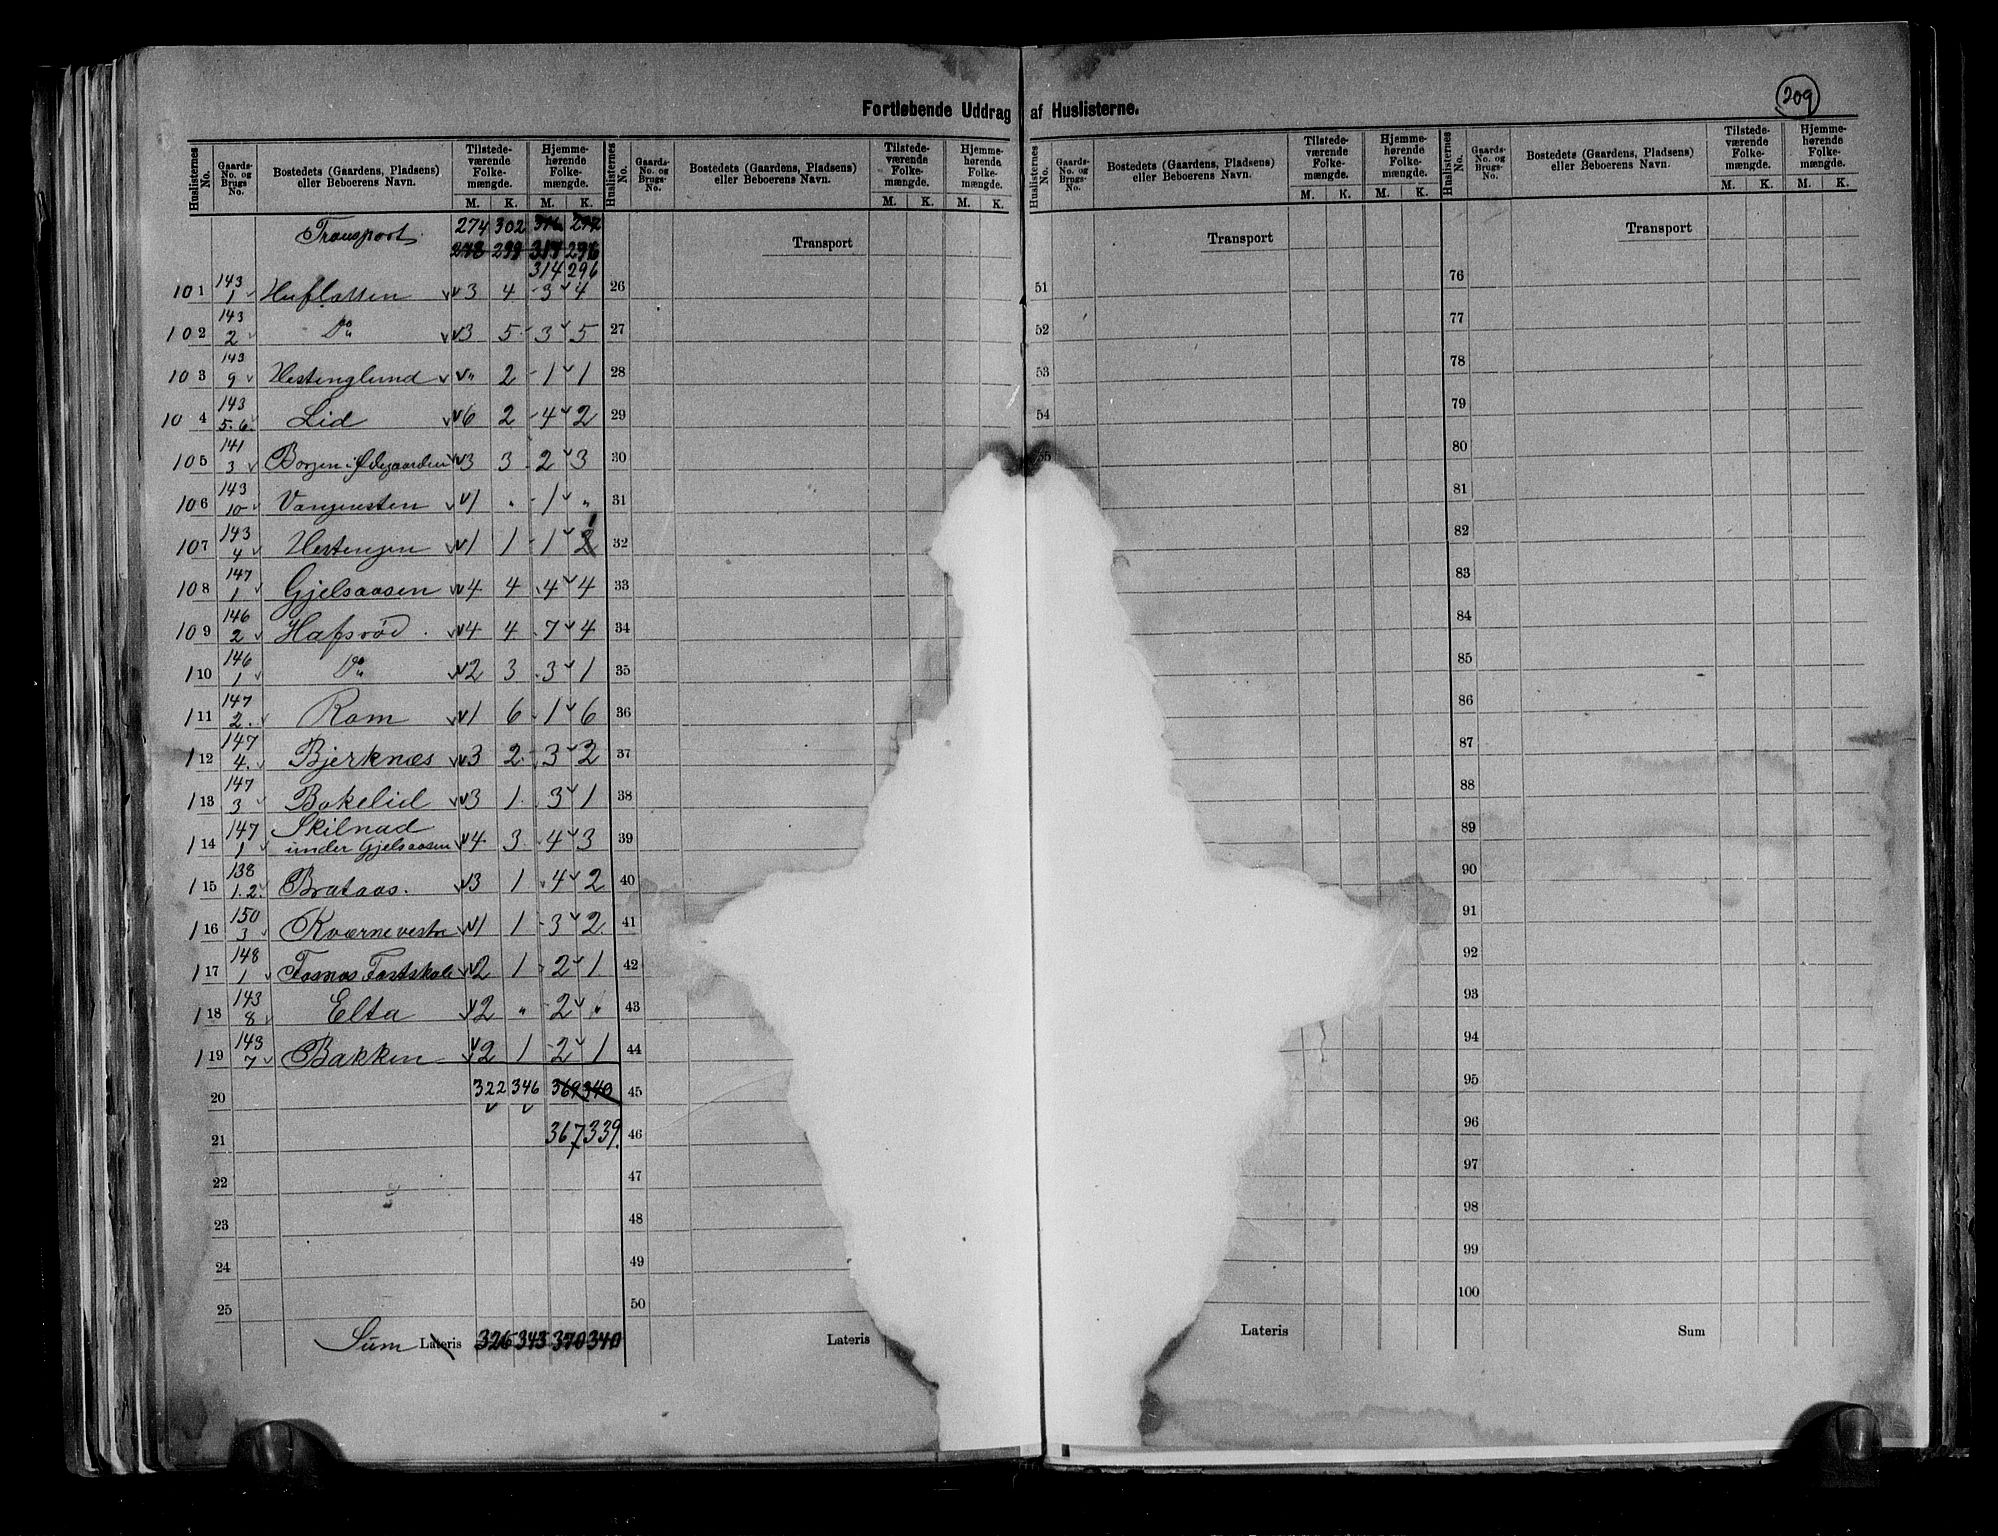 209
Fortløbende Uddrag af Huslisterne.
Huslisternes No. Gaards-No. og Brugs-No. Bostedets (Gaardens, Pladsens) eller Beboerens Navn. Tilstedeværende Folkemængde. M. K. Hjemmehørende Folkemængde. M. K.
Huslisternes No. Gaards-No. og Brugs-No. Bostedets (Gaardens, Pladsens) eller Beboerens Navn. Tilstedeværende Folkemængde. M. K. Hjemmehørende Folkemængde. M. K.
Huslisternes No. Gaards-No. og Brugs-No. Bostedets (Gaardens, Pladsens) eller Beboerens Navn. Tilstedeværende Folkemængde. M. K. Hjemmehørende Folkemængde. M. K.
Huslisternes No. Gaards-No. og Brugs-No. Bostedets (Gaardens, Pladsens) eller Beboerens Navn. Tilstedeværende Folkemængde. M. K. Hjemmehørende Folkemængde. M. K.
Transport 274 302 316 297 Transport Transport Transport
278 299 317 296
314 296
101 143 1 Huflatten 3 4 3 4 26 51 76
102 143 2 Do 3 5 3 5 27 52 77
103 143 9 Hestenglund " 2 1 1 28 53 78
104 143 5.6. Lid 6 2 4 2 29 54 79
105 141 3 Borgen i Ødegaarden 3 3 2 3 30 55 80
106 143 10 Vangensten 1 " 1 " 31 81
107 143 4 Hestengen 1 1 1 2 1 32 82
108 147 1 Gjelsaasen 4 4 4 4 33 83
109 146 2 Hafsrød 4 4 7 4 34 84
110 146 1 Do 2 3 3 1 35 85
111 147 2. Ram 1 6 1 6 36 86
112 147 4. Bjerknæs 3 2 3 2 37 87
113 147 3 Bakelid 3 1 3 1 38 88
114 147 1 Skilnad under Gjelsaasen 4 3 4 3 39 89
115 138 1.2. Brataas. 3 1 4 2 40 90
116 150 3 Kværne vestre 1 1 3 2 41 91
117 148 1 Fosnæs Fastskole 2 1 2 1 42 92
118 143 8 Elta 2 " 2 " 43 93
119 143 7 Bakken 2 1 2 1 44 94
20 322 346 369 340 45 95
21 367 339. 46 96
22 47 97
23 48 98
24 49 99
25 50 100
Sum Lateris 326 343 370 340 Lateris Lateris Sum